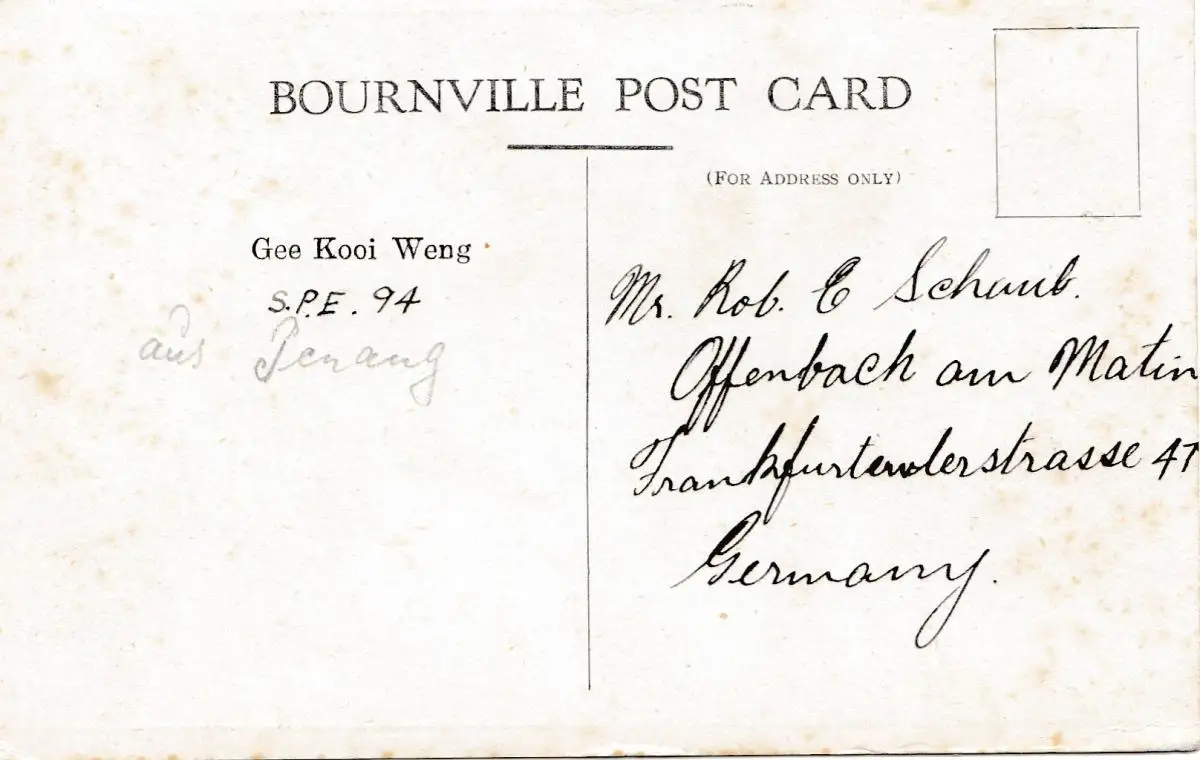 BOURNVILLE POST CARD
(FOR ADDRESS ONLY)
Gee Kooi Weng
S.P.E. 94
aus Penang
Mr. Rob. E Schaub.
Offenbach am Matin
Frankfurterderstrasse 47
Germany.